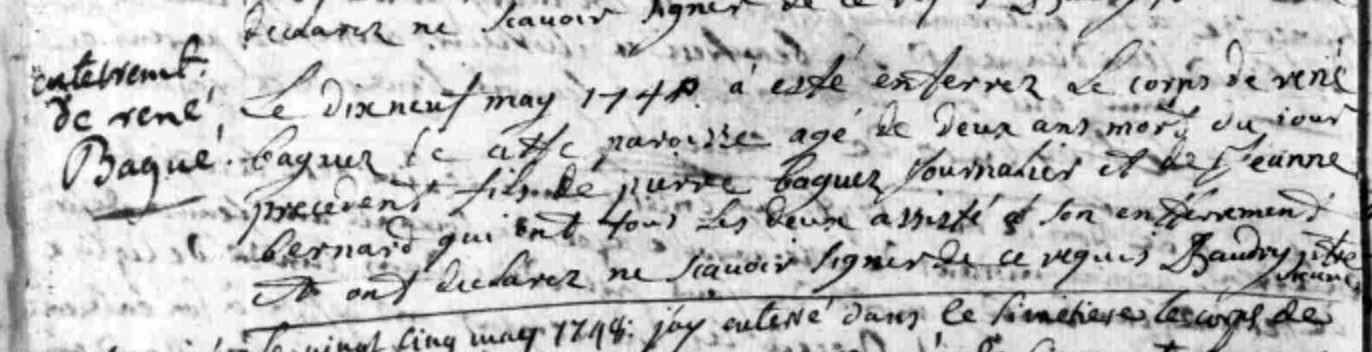 declarez ne scavoir signer de ce
enterremt.
de rené
Baqué.
Le dix neuf may 1748. a esté enterrez Le corps de rené
baquez de cette paroisse agé de deux ans mort du jour
precedent fils de pierre baquez journalier et de jeanne
bernard qui ont tous les deux assisté a son enterrement
et ont declarez ne scavoir signer de ce requis Baudry ptre
Le vingt cinq may 1748: j'ay enterré dans le simetiere le corps de